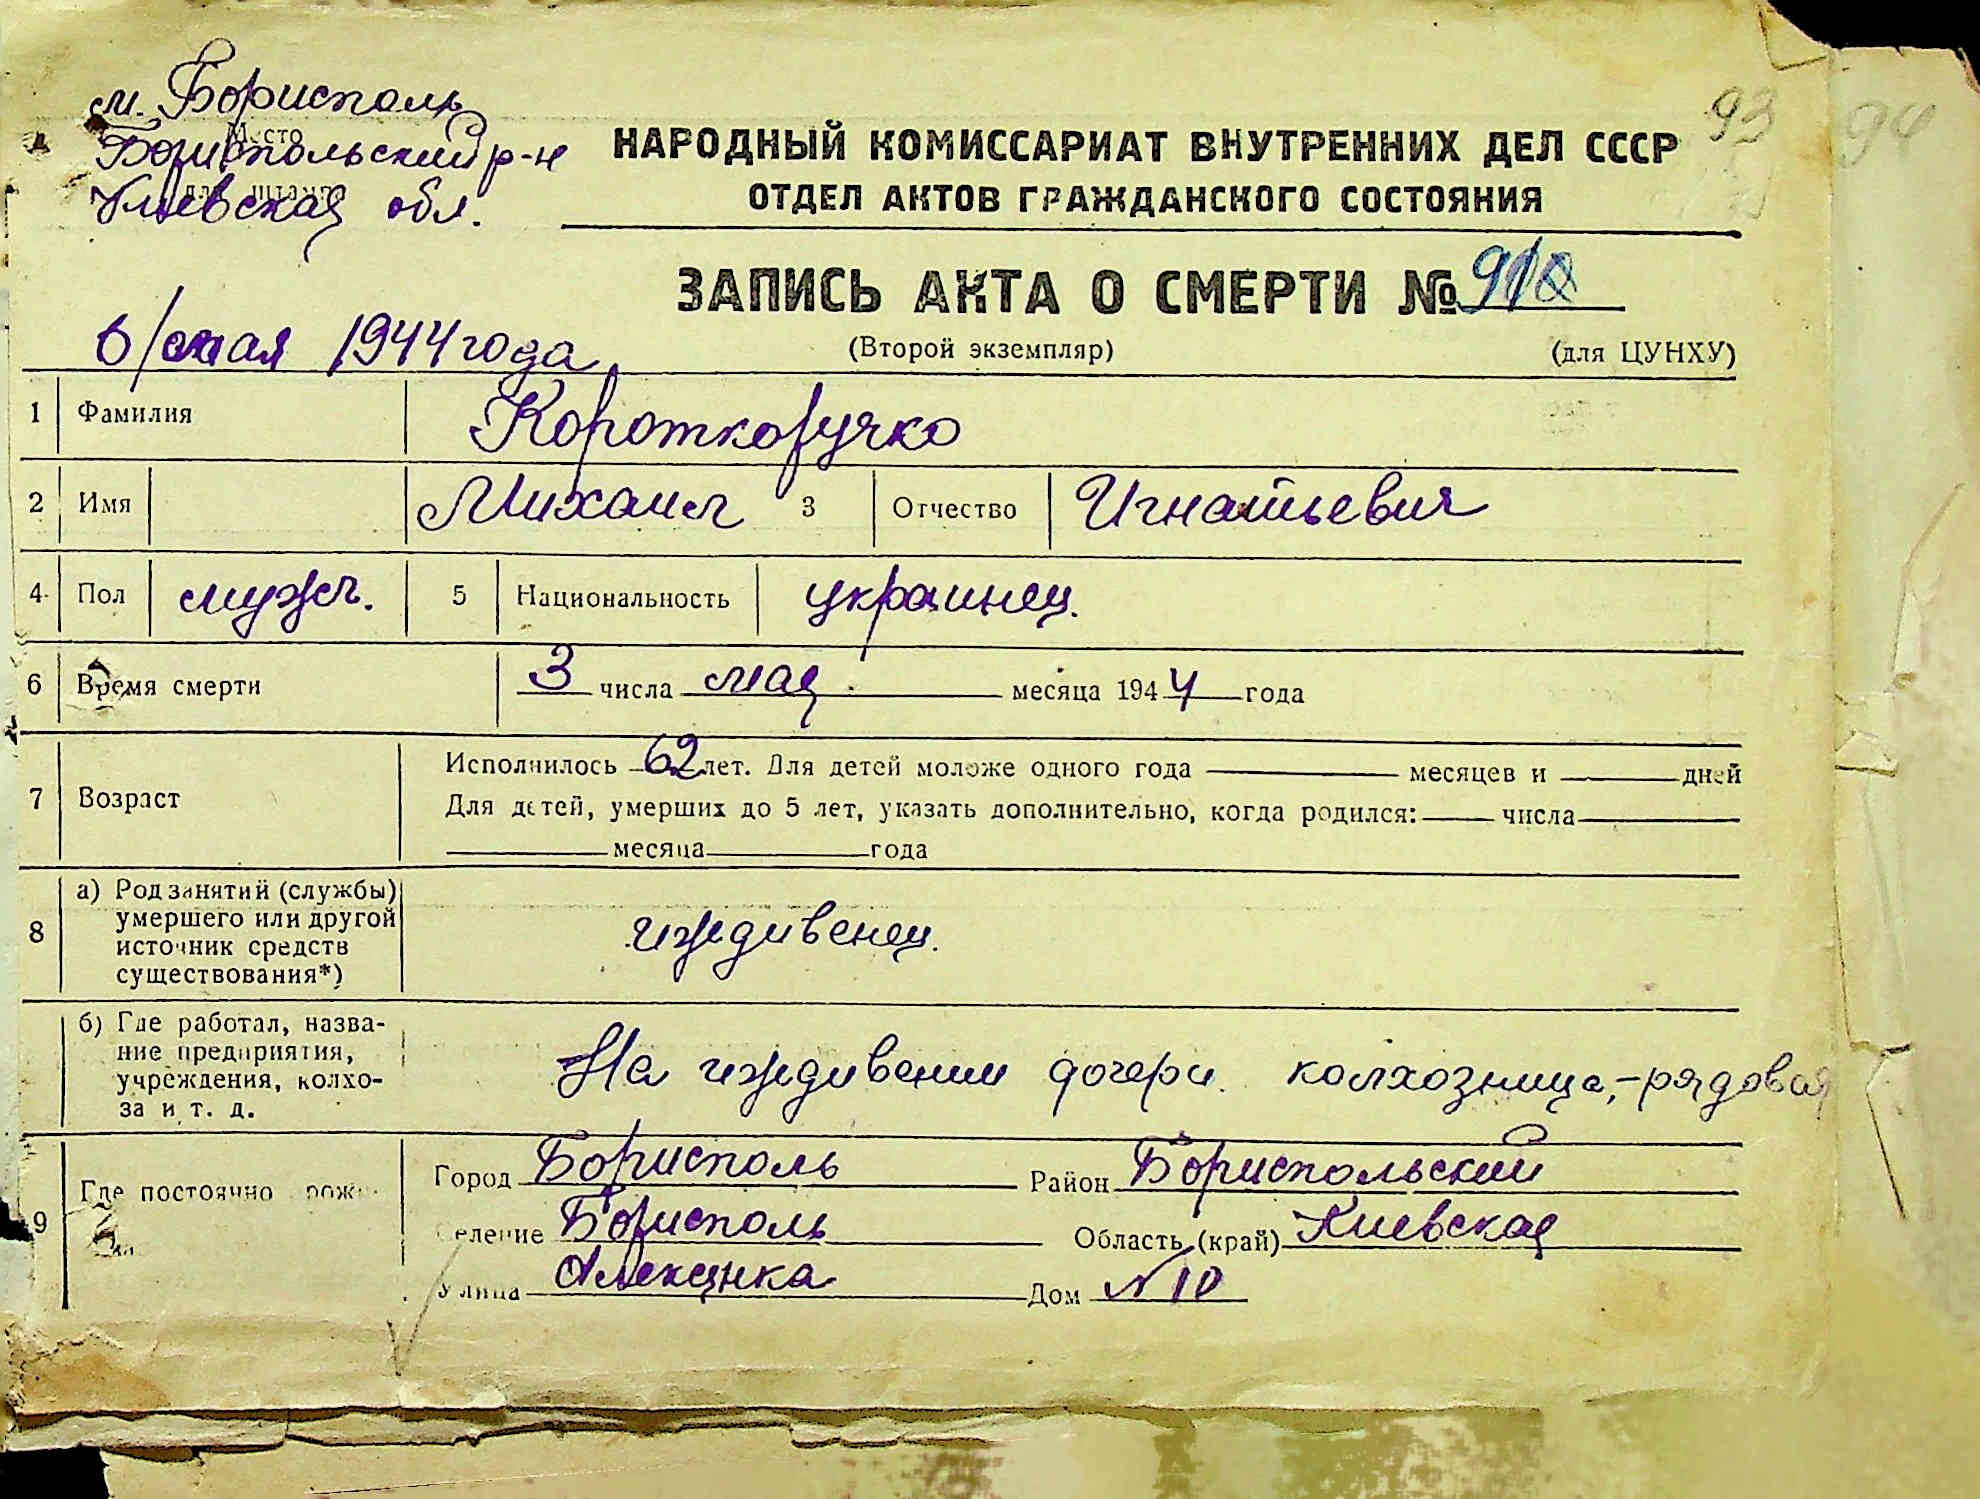 м. Борисполь
Место
Бориспольский р-н
для штампа
Киевская обл.
93
94
НАРОДНЫЙ КОМИССАРИАТ ВНУТРЕННИХ ДЕЛ СССР
ОТДЕЛ АКТОВ ГРАЖДАНСКОГО СОСТОЯНИЯ
ЗАПИСЬ АКТА О СМЕРТИ №
6/мая 1944 года
(Второй экземпляр) (для ЦУНХУ)
1 Фамилия Короткоручко
2 Имя Михаил 3 Отчество Игнатьевич
4 Пол мужч. 5 Национальность украинец.
6 Время смерти 3 числа мая месяца 1944 года
7 Возраст
Исполнилось 62 лет. Для детей моложе одного года месяцев и дней
Для детей, умерших до 5 лет, указать дополнительно, когда родился: числа
месяца года
8 а) Род занятий (службы)
умершего или другой
источник средств
существования*)
иждивенец.
б) Где работал, назва-
ние предприятия,
учреждения, колхо-
за и т. д.
На иждивении дочери. колхозница,-рядовая
9 Где постоянно
Город Борисполь Район Бориспольский
Селение Борисполь Область (край) Киевская
Улица Дом № 10